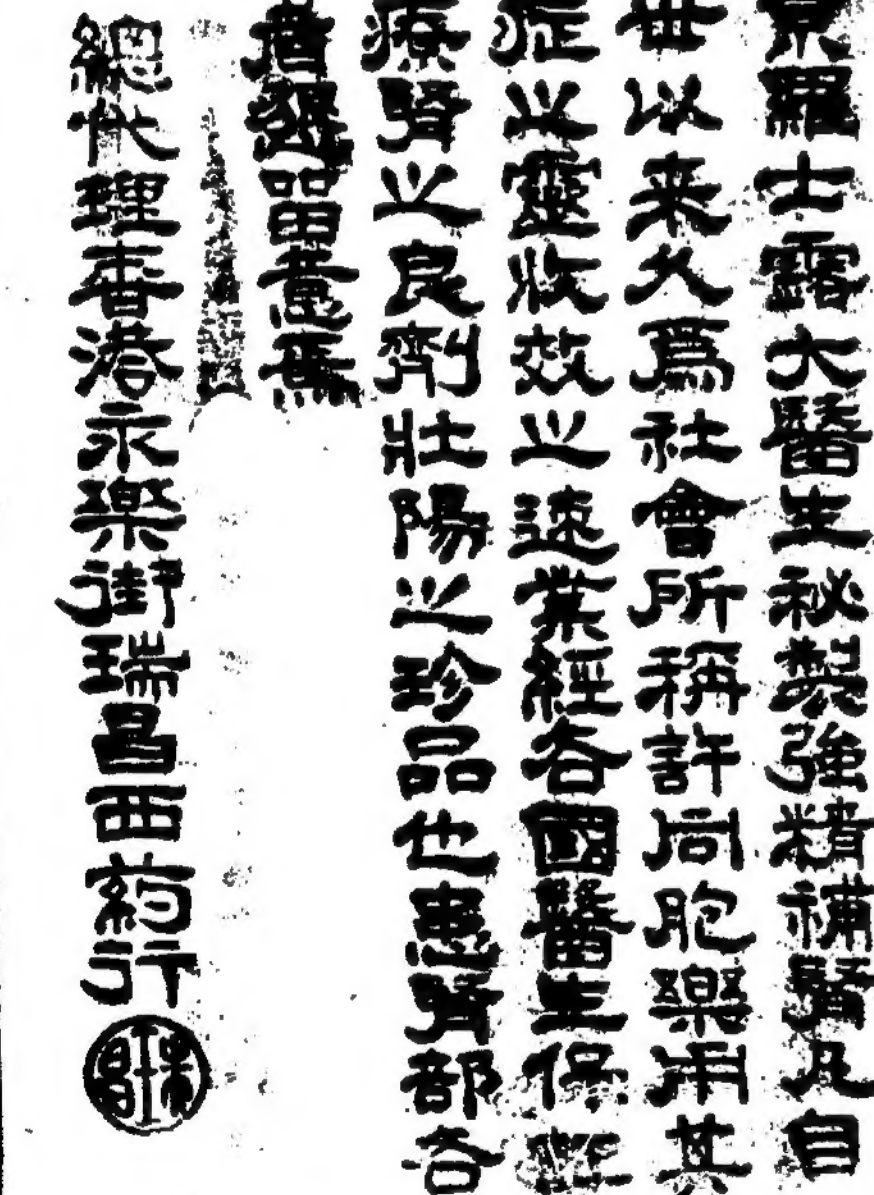 羅士露大醫生秘製強精補腎丸自
世以来久爲社會所稱許同胞樂用其
症之靈收效之速業經各國醫生保証
療腎之良劑壯陽之珍品也患腎部各
者懇留意焉
總代理香港永樂街瑞昌西药行